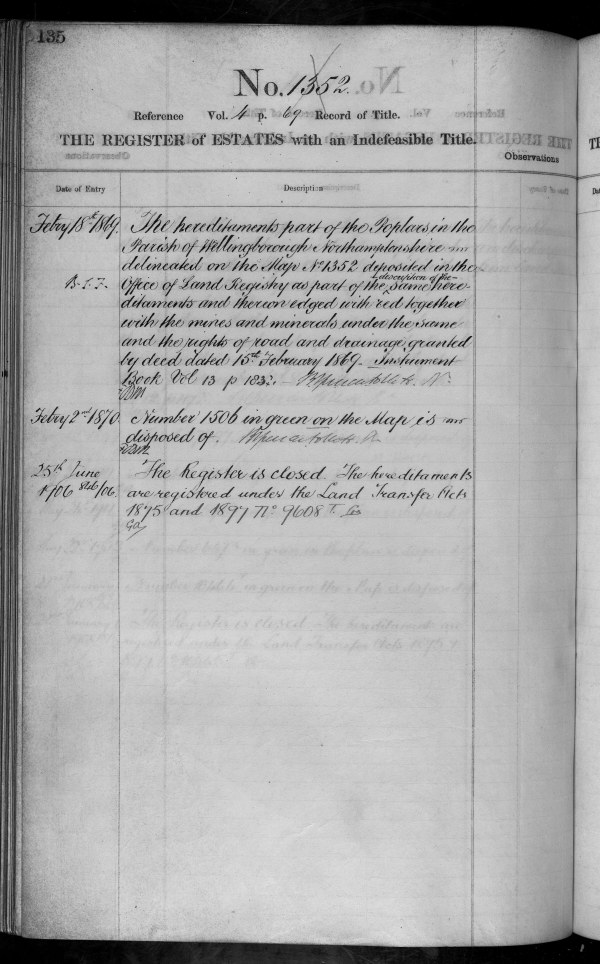 135
No. 1352.
Reference Vol. 4 p. 69 Record of Title.
THE REGISTER of ESTATES with an Indefeasible Title.
Observations
Date of Entry
Description
Febry 18th 1869.
The hereditaments part of the Poplars in the
Parish of Wellingborough Northamptonshire
delineated on the Map No 1352 deposited in the
description of the
Office of Land Registry as part of the same here-
ditaments and thereon edged with red together
with the mines and minerals under the same
and the rights of road and drainage granted
by deed dated 15th February 1869. Instrument
Book Vol 13 p 1832.
Febry 2nd 1870.
Number 1506 in green on the Map is
disposed of.
25th June
1906
The Register is closed. The hereditaments
are registered under the Land Transfer Acts
1875 and 1897 No 9608